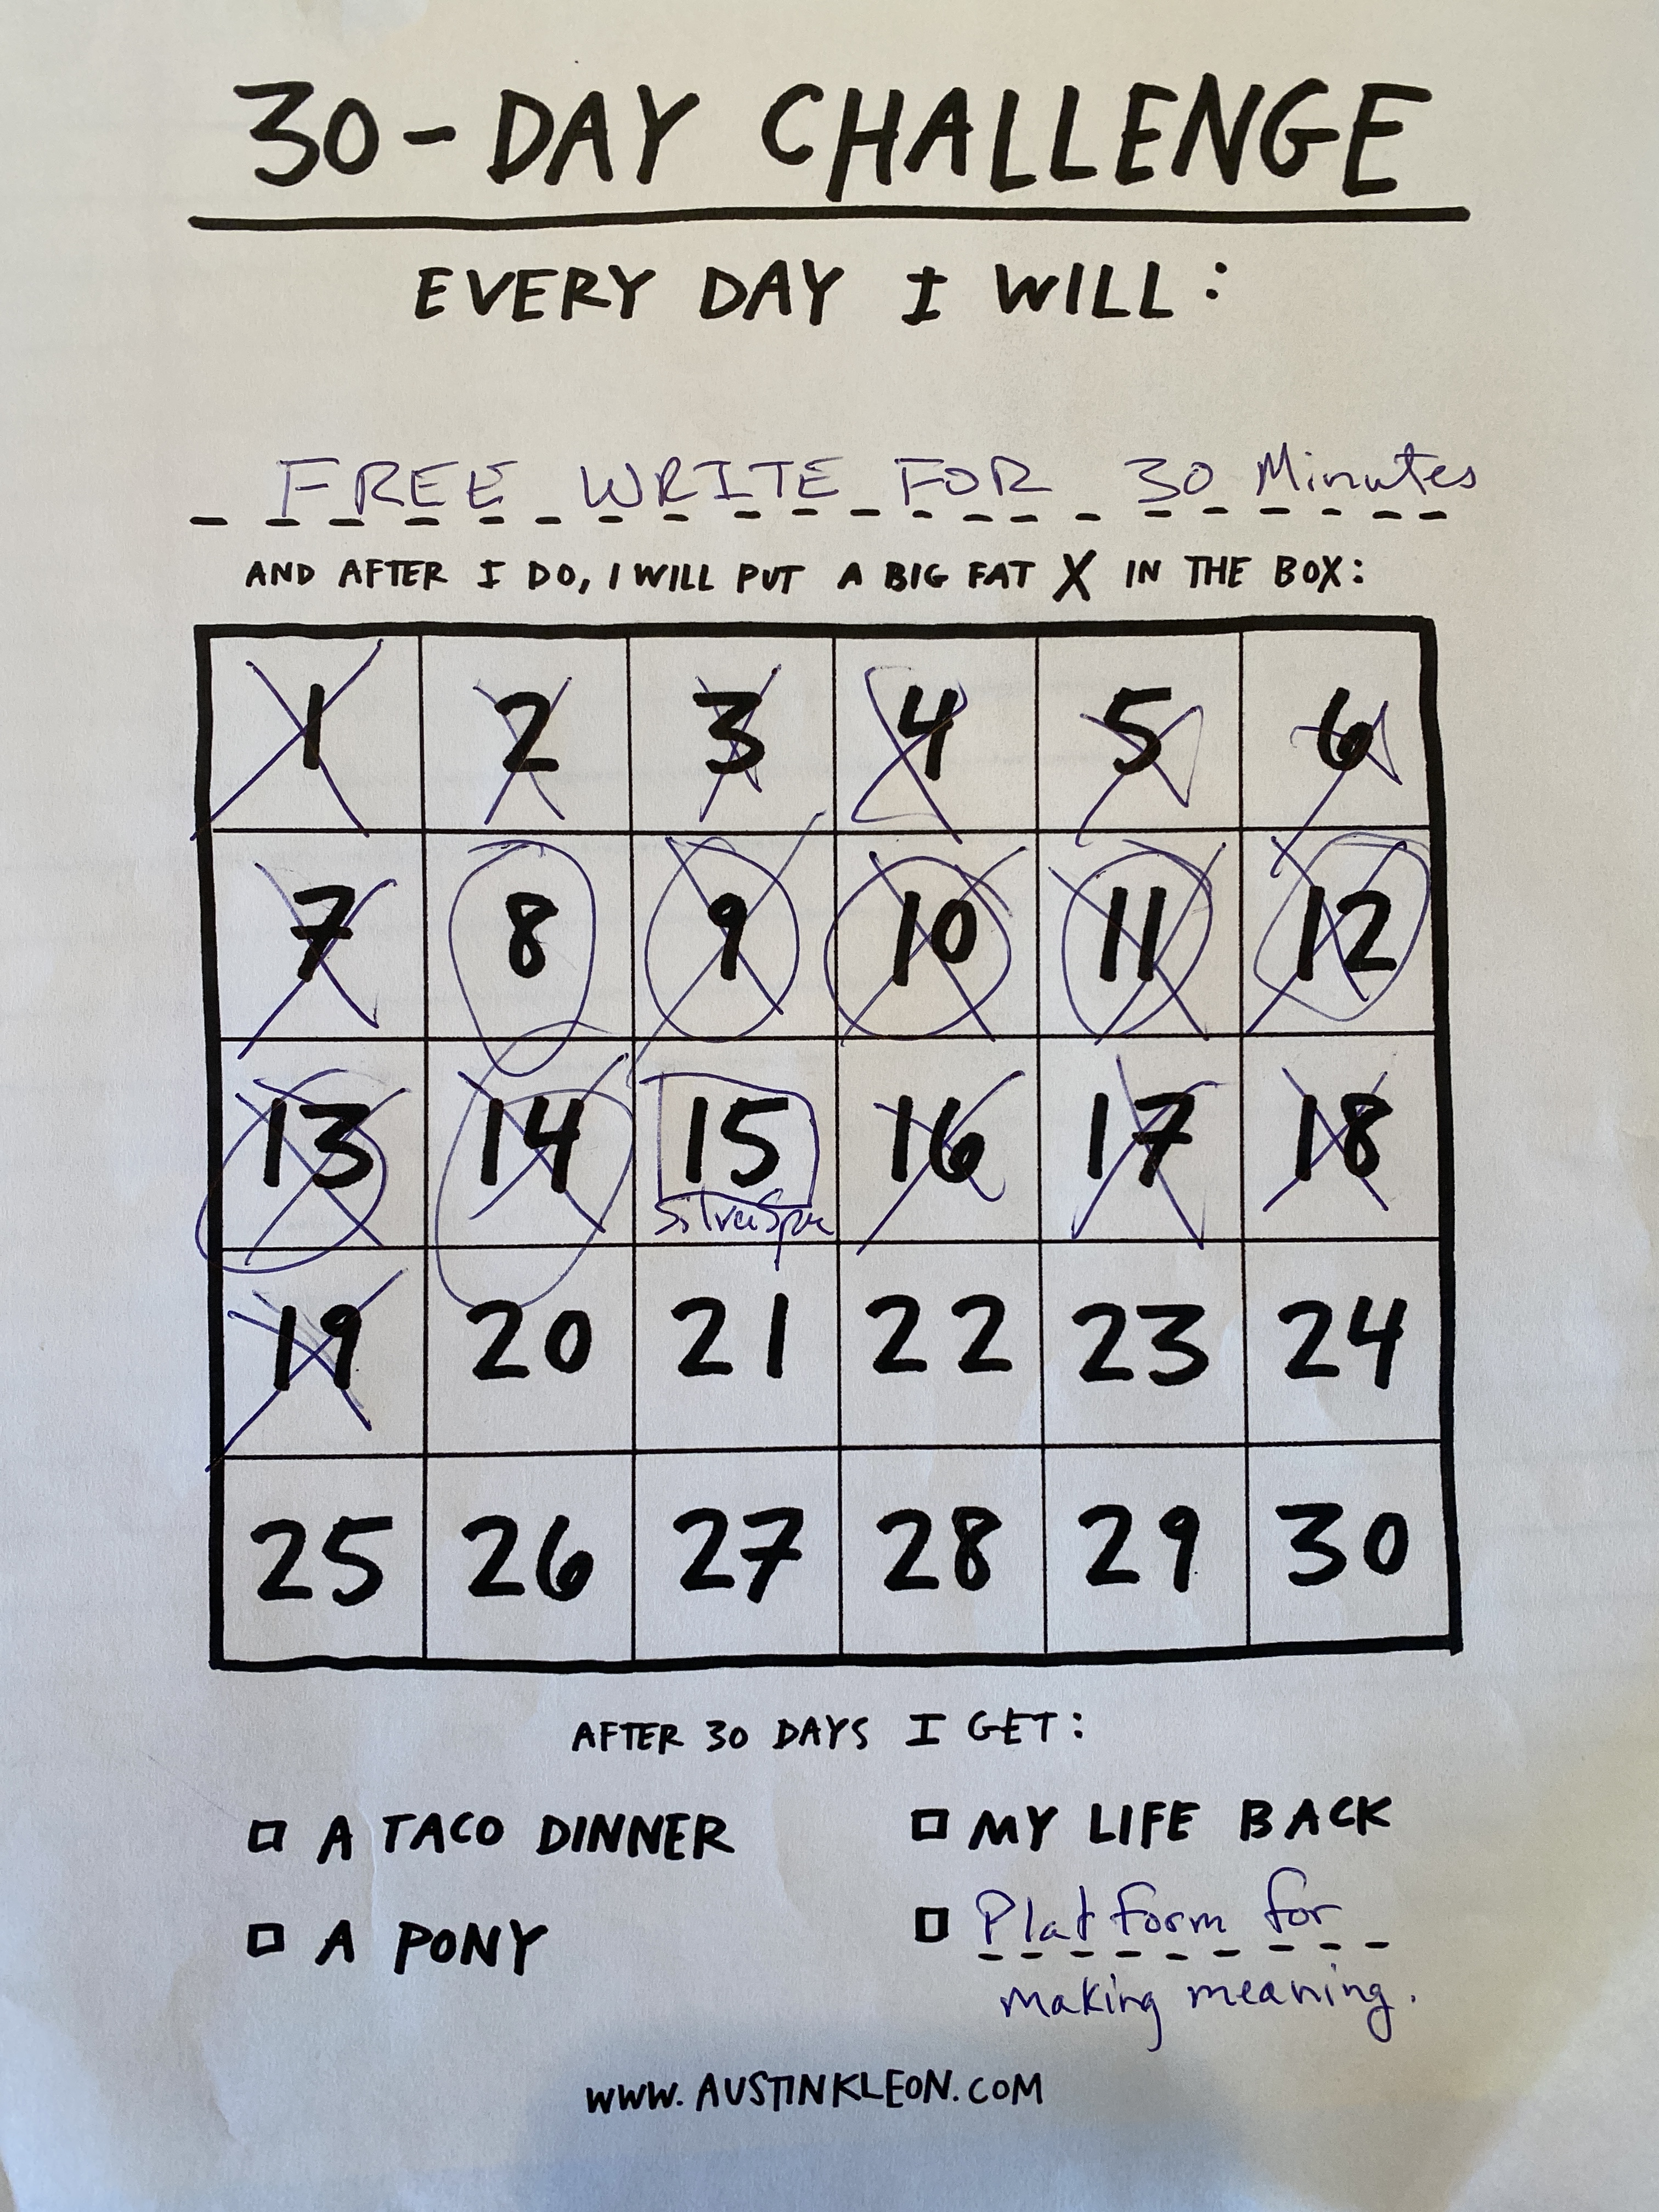 30-DAY CHALLENGE
EVERY DAY I WILL:
FREE WRITE FOR 30 Minutes
AND AFTER I DO, I WILL PUT A BIG FAT X IN THE BOX:
1 2 3 4 5 6
7 8 9 10 11 12
13 14 15 16 17 18
19 20 21 22 23 24
25 26 27 28 29 30
AFTER 30 DAYS I GET:
A TACO DINNER
MY LIFE BACK
A PONY
Platform for
making meaning.
WWW.AUSTINKLEON.COM